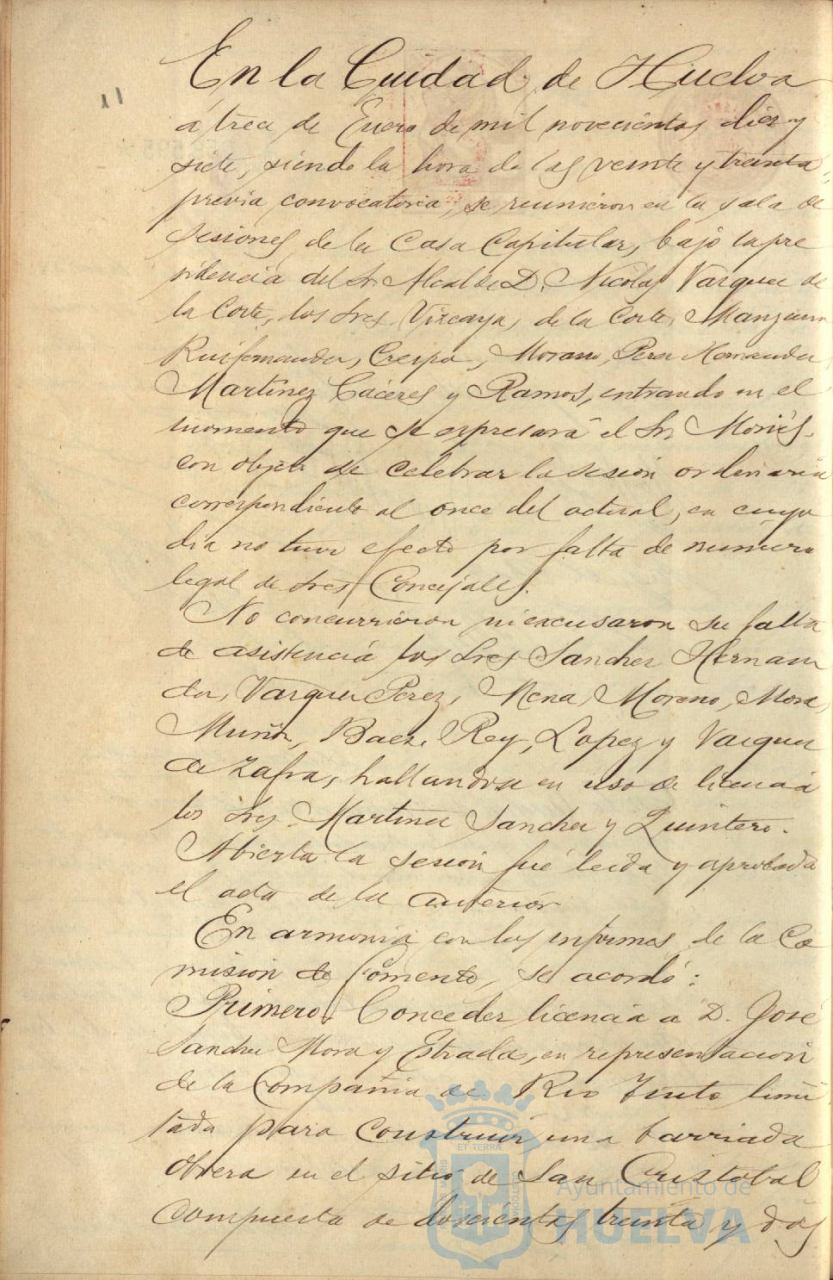 11
En la Ciudad de Huelva
á trece de Enero de mil novecientos diez y
siete, siendo la hora de las veinte y treinta,
previa convocatoria, se reunieron en la sala de
sesiones de la Casa Capitular, bajo la pre
sidencia del Sr Alcalde D. Nicolas Vazquez de
la Corte, los Sres Vizcaya, de la Corte, Manzano
Ruifernandez, Crespo, Morano, Perez Hernandez
Martínez Cáceres y Ramos, entrando en el
momento que se expresará el Sr Moriés,
con objeto de celebrar la sesión ordinaria
correspondiente al once del actual, en cuyo
dia no tuvo efecto por falta de número
legal de Sres Concejales.
No concurrieron ni excusaron su falta
de asistencia los Sres Sanchez Hernan
dez, Vazquez Perez, Mena, Moreno, Mora,
Muñiz, Baez, Rey, Lopez y Vazquez
de Zafra, hallandose en uso de licencia
los Sres. Martinez Sanchez y Quintero.
Abierta la sesión fué leida y aprobada
el acta de la anterior
En armonia con los informes de la Co
mision de fomento, se acordó:
Primero. Conceder licencia a D. José
Sanchez Mora y Estrada, en representación
de la Compañia de Rio Tinto limi
tada para construir una barriada
obrera en el sitio de San Cristobal
compuesta de doscientas treinta y dos
Ayuntamiento de
HUELVA